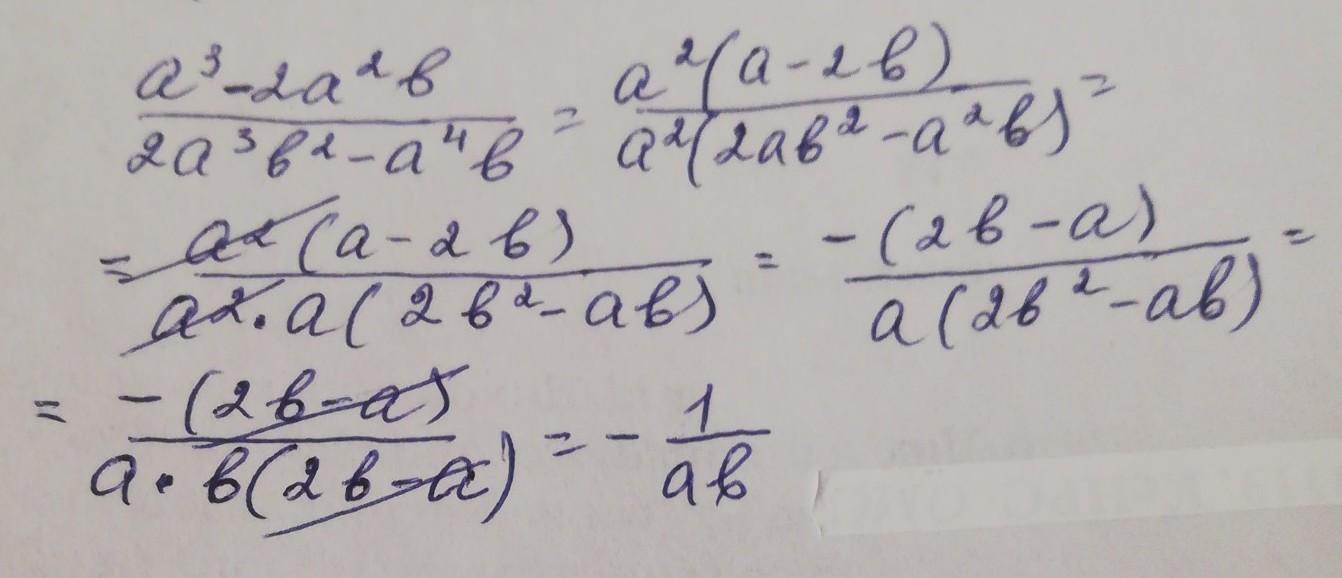 \frac{a^3-2a^2b}{2a^3b^2-a^4b} = \frac{a^2(a-2b)}{a^2(2ab^2-a^2b)} =
= \frac{a^2(a-2b)}{a^2 \cdot a(2b^2-ab)} = \frac{-(2b-a)}{a(2b^2-ab)} =
= \frac{-(2b-a)}{a \cdot b(2b-a)} = -\frac{1}{ab}